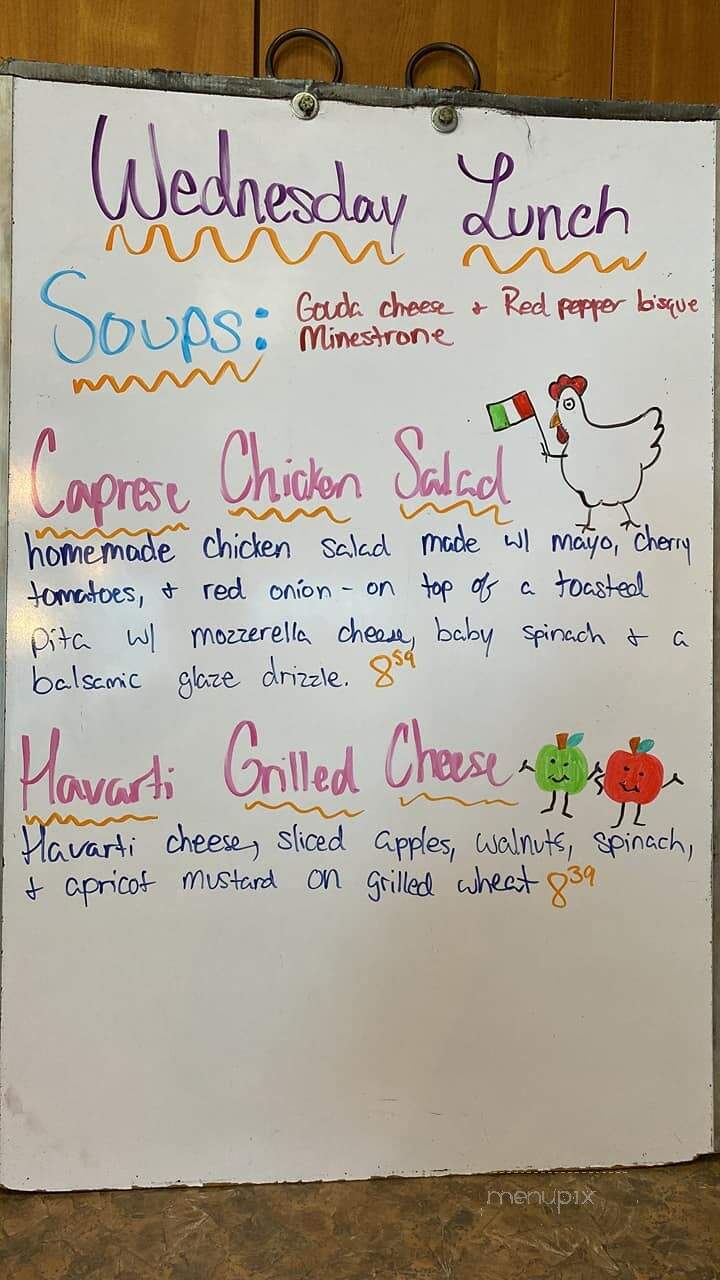 Wednesday Lunch
Soups: Gouda cheese + Red pepper bisque
Minestrone
Caprese Chicken Salad
homemade chicken salad made w/ mayo, cherry
tomatoes, + red onion - on top of a toasted
pita w/ mozzerella cheese, baby spinach + a
balsamic glaze drizzle. 8 59
Havarti Grilled Cheese
Havarti cheese, sliced apples, walnuts, spinach,
+ apricot mustard on grilled wheat 8 39
menupix